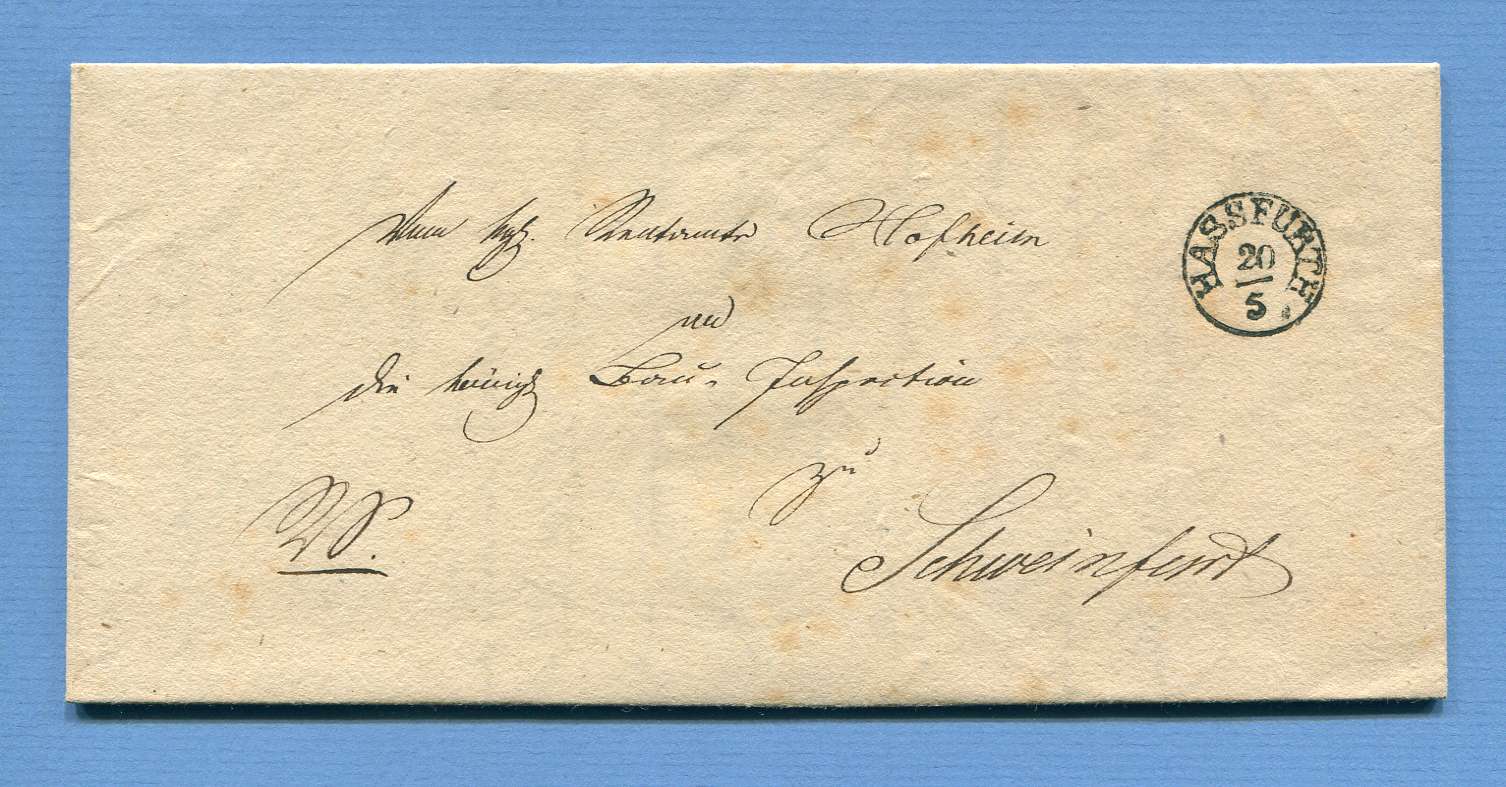 Vom kgl. Rentamte Hofheim
HASSFURTH
20
5
an
die königl Bau-Inspection
zu
Schweinfurt